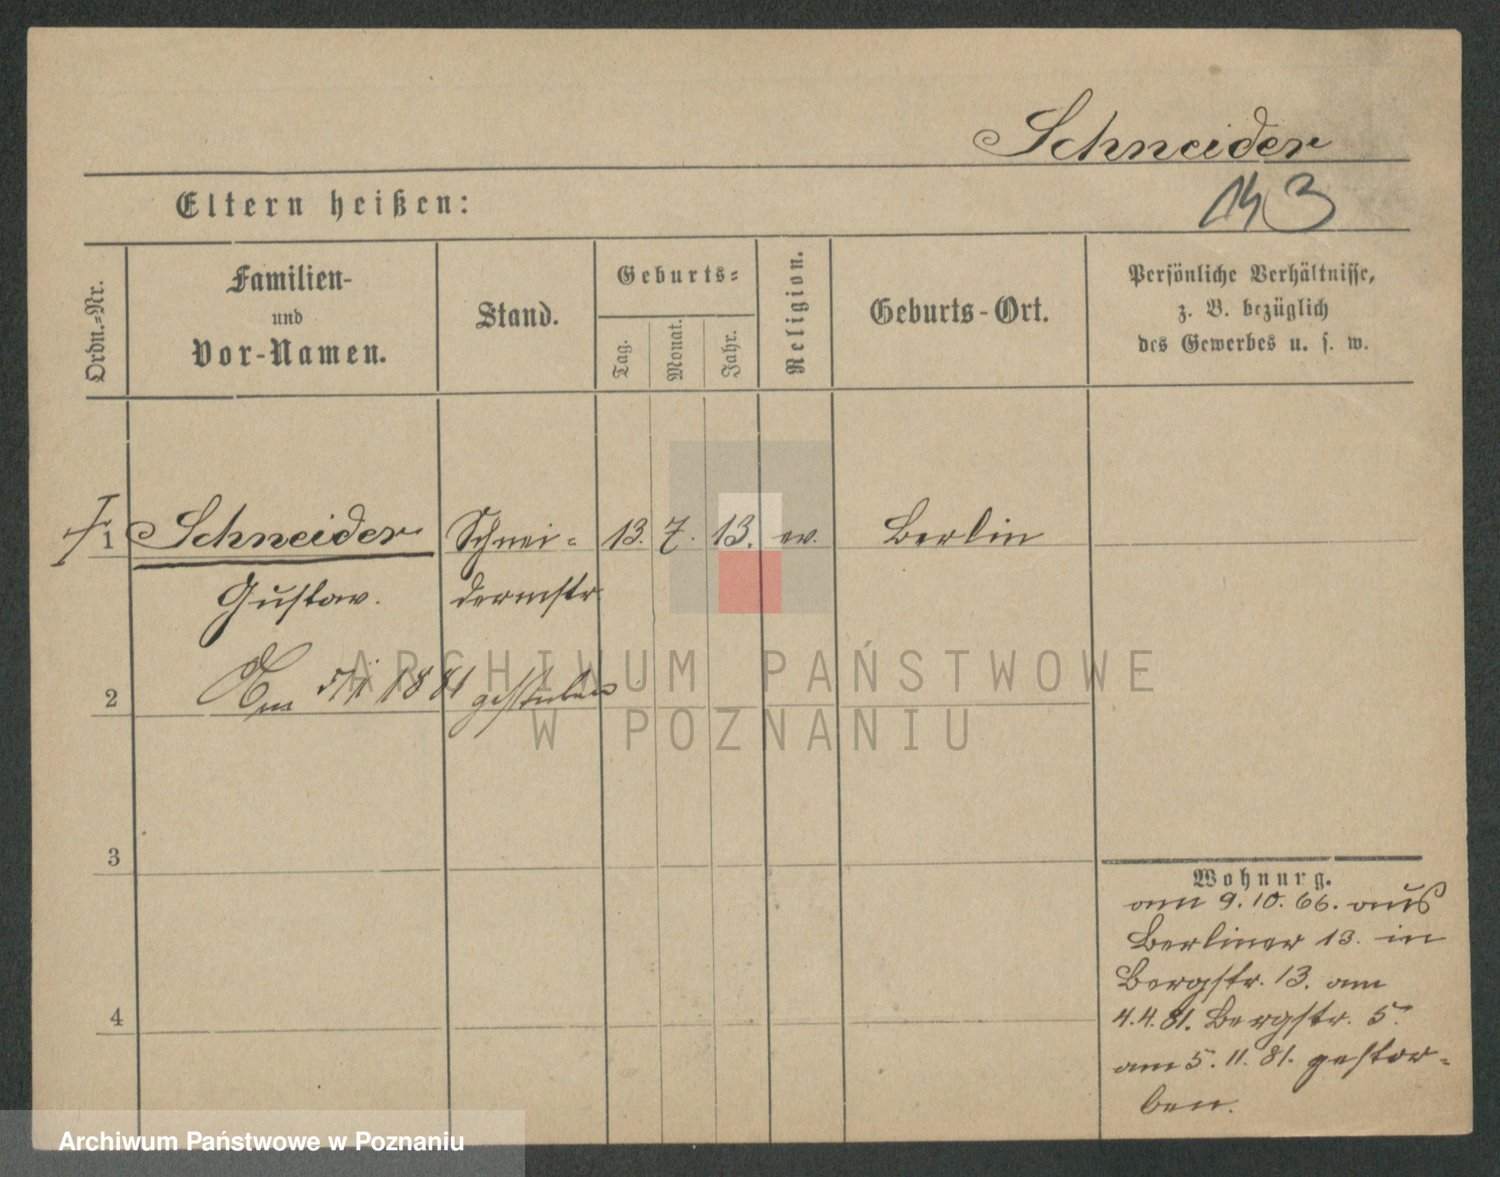 Schneider
143
Eltern heißen:
Ordn.-Nr.
Familien-
und
Vor-Namen.
Stand.
Geburts-
Tag.
Monat.
Jahr.
Religion.
Geburts-Ort.
Persönliche Verhältnisse,
z. B. bezüglich
des Gewerbes u. s. w.
1 Schneider Schnei- 13. 7. 13. ev. Berlin
Gustav. dermstr
2 Am 5/11 1881 gestorben
3
4
Wohnung.
am 9.10.66. aus
Berliner 13. in
Bergstr. 13. am
4.4.81. Bergstr. 5.
am 5.11.81. gestor-
ben.
ARCHIWUM PAŃSTWOWE
W POZNANIU
Archiwum Państwowe w Poznaniu